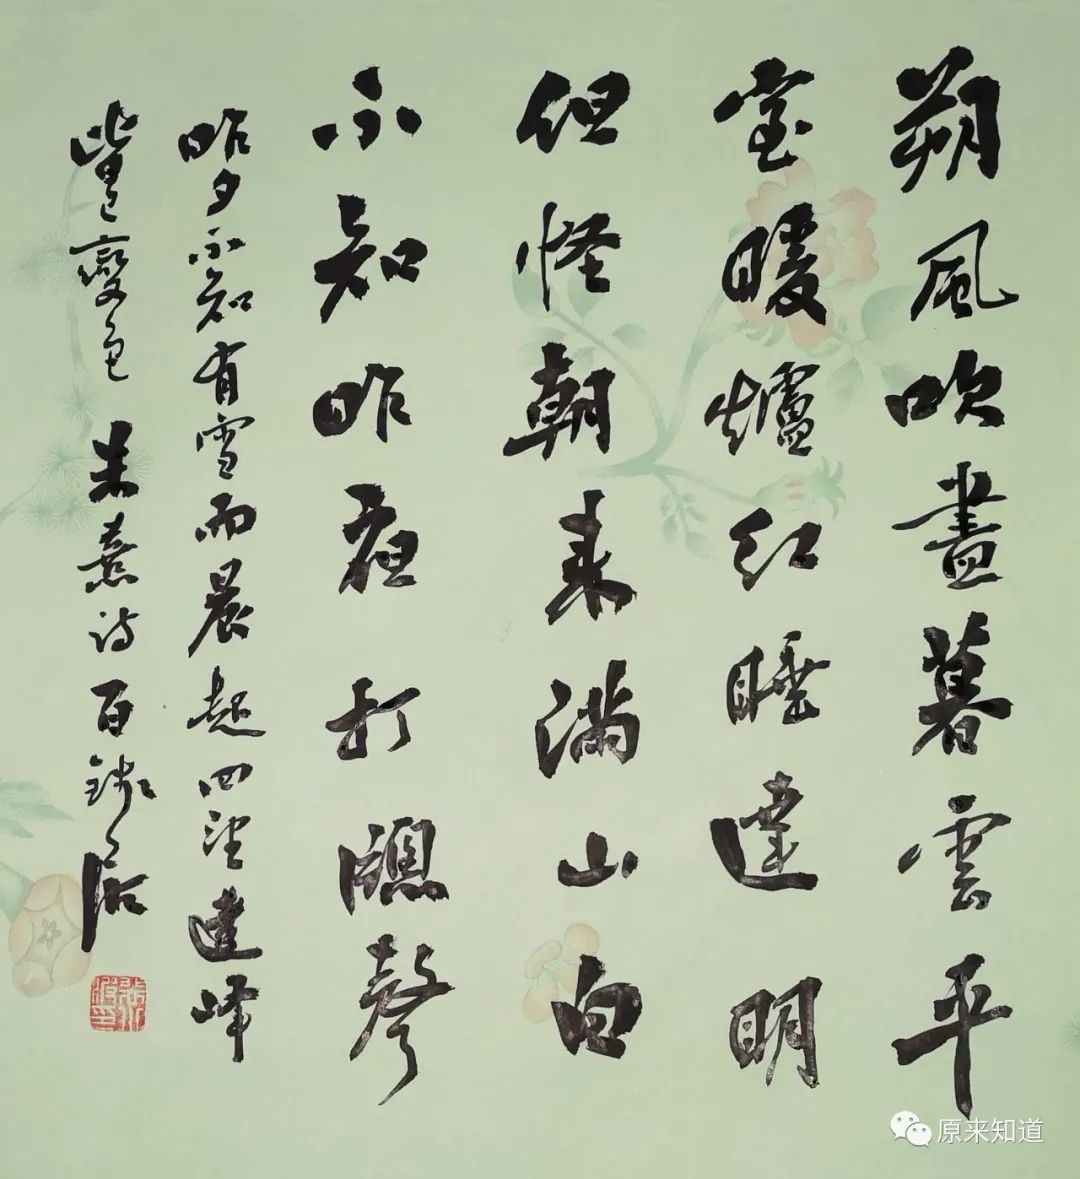 朔風吹盡暮雲平
室暖爐红睡達明
但怪朝来滿山白
不知昨夜打牕聲
昨夕不知有雪而晨起四望遠峰
皆已變色 朱熹诗 百
原来知道